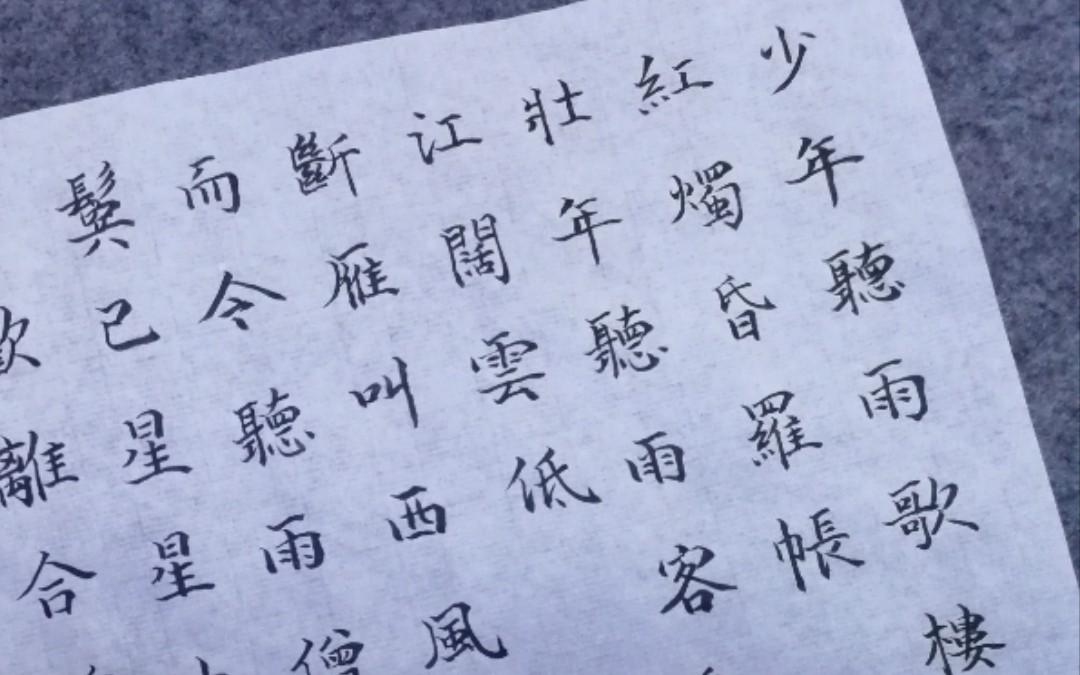 少年聽雨歌樓
紅燭昏羅帳
壯年聽雨客
江闊雲低
斷雁叫西風
而今聽雨僧
鬢已星星
離合